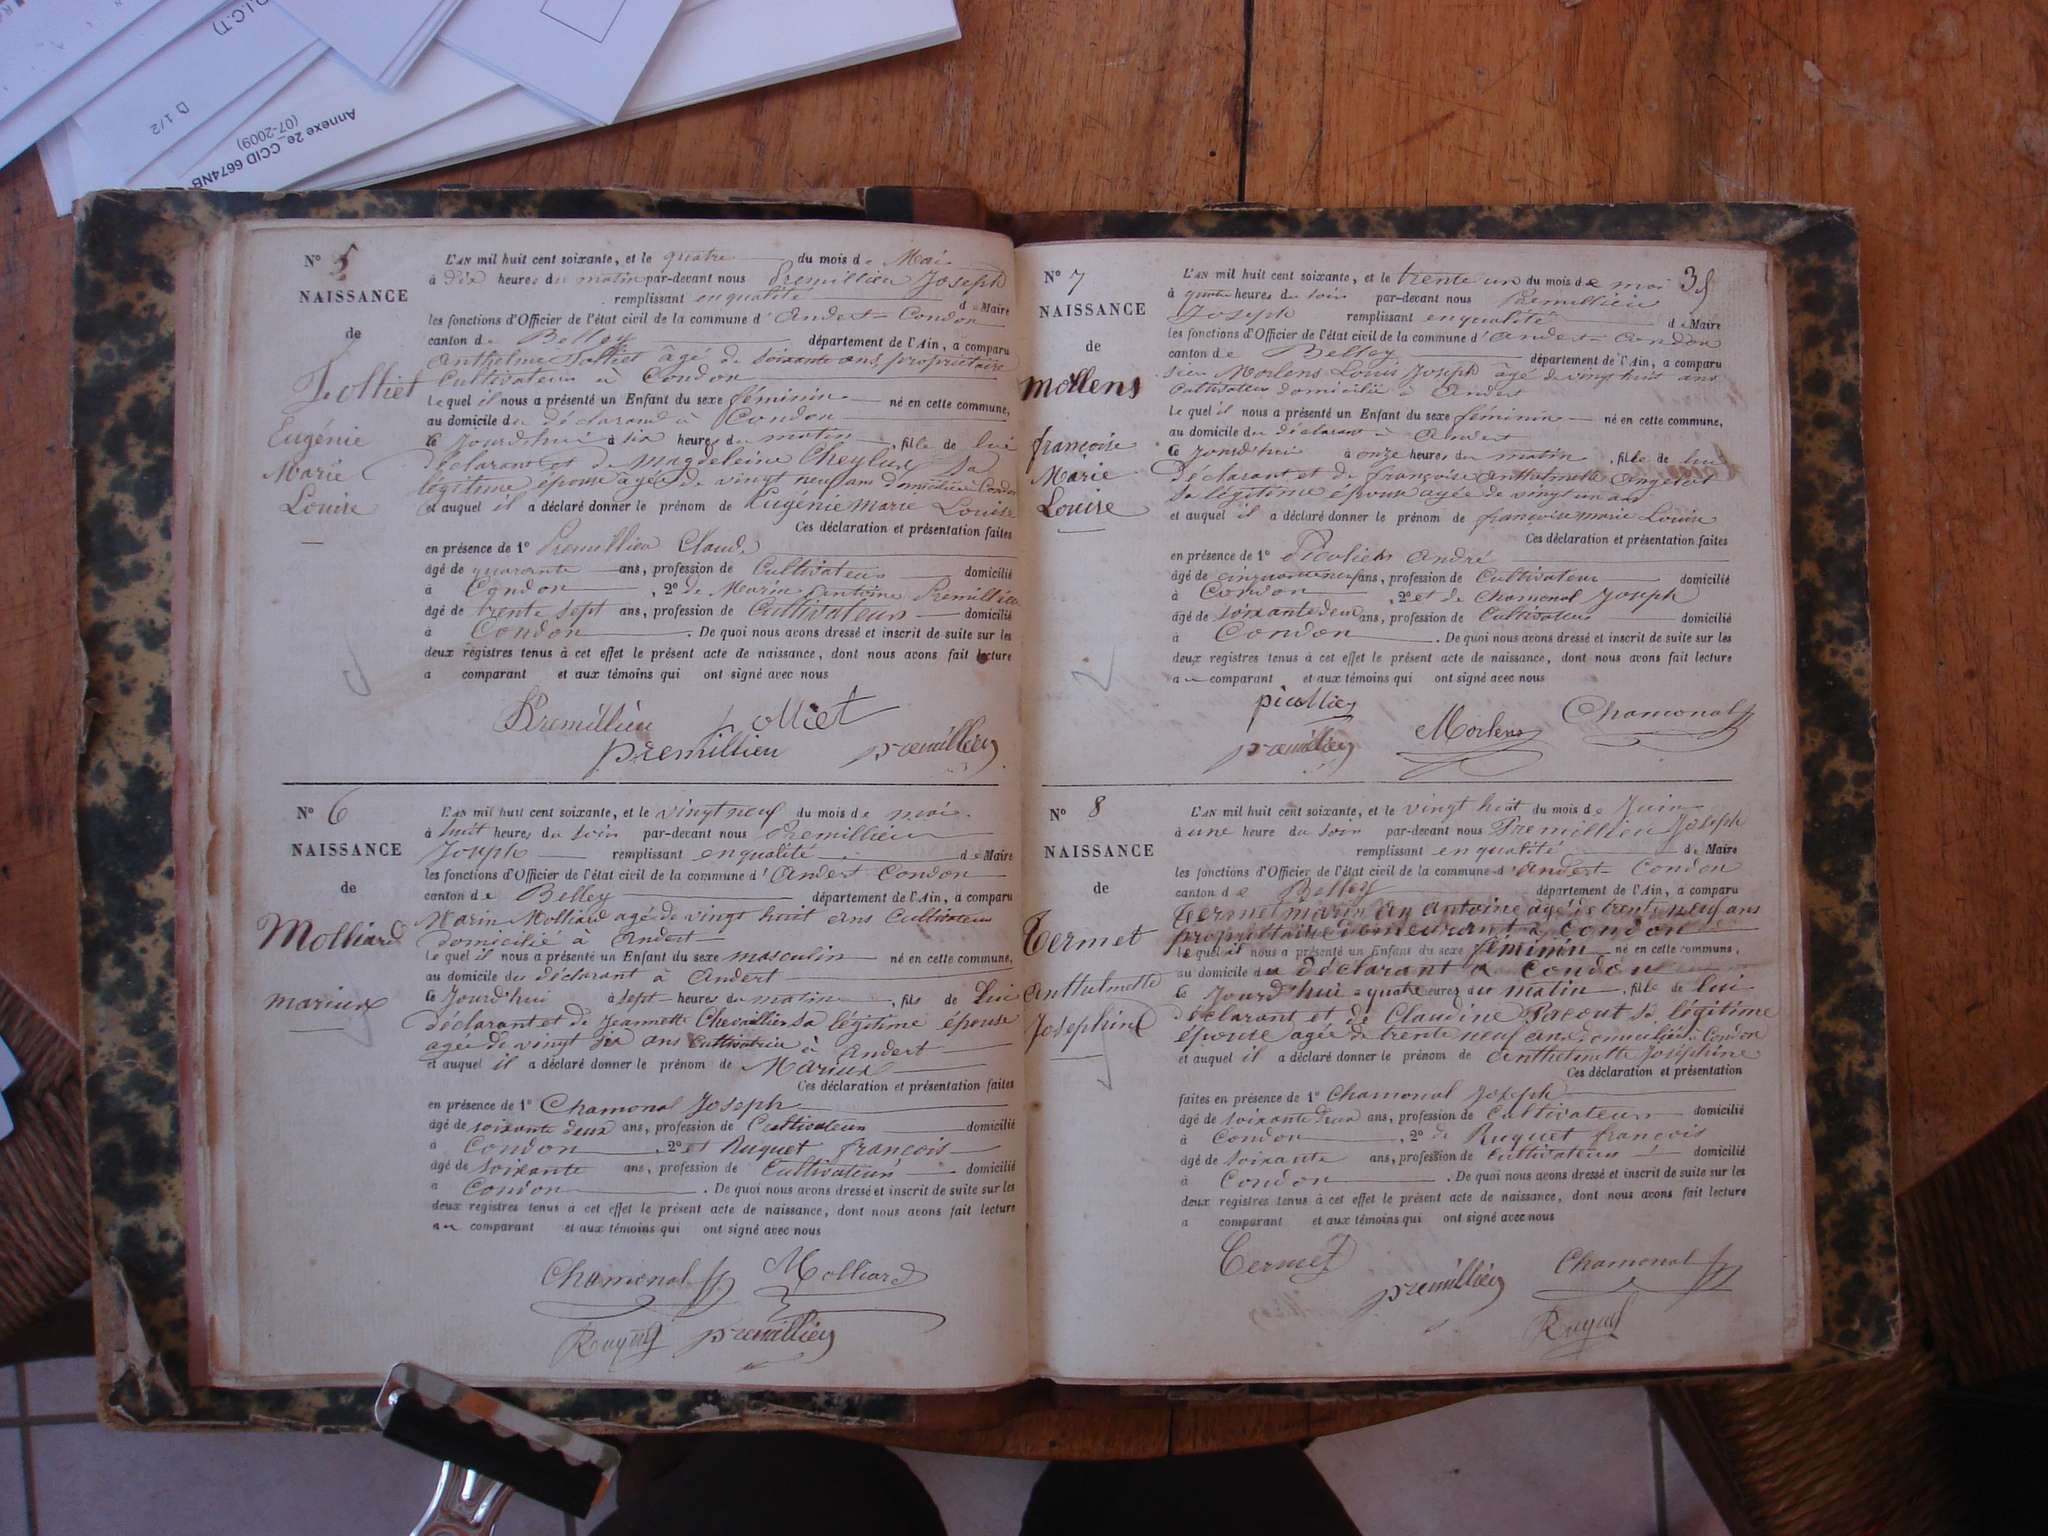 D.I.C.T)
D 1/2
Annexe 2e_CCID 6674NB
(07-2009)
N° 5
NAISSANCE
de
Jolliet
Eugénie
Marie
Louise
L'AN mil huit cent soixante, et le quatre du mois de Mai
à dix heures du matin par-devant nous Premillieu Joseph
remplissant en qualité de Maire
les fonctions d'Officier de l'état civil de la commune d'Andert-Condon
canton de Belley département de l'Ain, a comparu
Anthelme Jolliet âgé de soixante ans, propriétaire
Cultivateur à Condon
Lequel il nous a présenté un Enfant du sexe féminin né en cette commune,
au domicile du déclarand à Condon
Ce Jourd'hui à six heures du matin, fille de lui
déclarant et de Magdeleine Cheylux Sa
légitime épouse âgée de vingt neuf ans domiciliée à Condon
et auquel il a déclaré donner le prénom de Eugénie Marie Louise
Ces déclaration et présentation faites
en présence de 1° Premillieu Claude
âgé de quarante ans, profession de Cultivateur domicilié
à Condon, 2° de Marin Antoine Premillieu
âgé de trente sept ans, profession de Cultivateur domicilié
à Condon. De quoi nous avons dressé et inscrit de suite sur les
deux registres tenus à cet effet le présent acte de naissance, dont nous avons fait lecture
a comparant et aux témoins qui ont signé avec nous
Premillieu Jolliet
premillieu premillieu
N° 6
NAISSANCE
de
Molliard
mariux
L'AN mil huit cent soixante, et le vingt neuf du mois de mai
à huit heures du soir par-devant nous Premillieu
Joseph remplissant en qualité de Maire
les fonctions d'Officier de l'état civil de la commune d'Andert Condon
canton de Belley département de l'Ain, a comparu
Marin Molliard agé de vingt huit ans Cultivateur
domicilié à Andert
Lequel il nous a présenté un Enfant du sexe masculin né en cette commune,
au domicile du déclarant à Andert
Ce Jourd'hui à sept heures du matin, fils de Lui
déclarant et de Jeannette Chevaillier sa légitime épouse
agée de vingt ans Cultivatrice à Andert
et auquel il a déclaré donner le prénom de Mariux
Ces déclaration et présentation faites
en présence de 1° Chamonal Joseph
âgé de soixante deux ans, profession de Cultivateur domicilié
à Condon, 2° et Ruguet françois
âgé de soixante ans, profession de Cultivateur domicilié
à Condon. De quoi nous avons dressé et inscrit de suite sur les
deux registres tenus à cet effet le présent acte de naissance, dont nous avons fait lecture
au comparant et aux témoins qui ont signé avec nous
Chamonal Molliard
Ruguet premillieu
35
N° 7
NAISSANCE
de
Mollens
françoise
Marie
Louise
L'AN mil huit cent soixante, et le trente un du mois de mai
à quatre heures du soir par-devant nous Premillieu
Joseph remplissant en qualité de Maire
les fonctions d'Officier de l'état civil de la commune d'Andert-Condon
canton de Belley département de l'Ain, a comparu
sieur Morlens Louis Joseph âgé de vingt huit ans
Cultivateur domicilié à Andert
Lequel il nous a présenté un Enfant du sexe féminin né en cette commune,
au domicile du déclarant à Andert
Ce Jourd'hui à onze heures du matin, fille de lui
déclarant et de françoise Anthelmette
Sa légitime épouse agée de vingt un ans
et auquel il a déclaré donner le prénom de françoise marie Louise
Ces déclaration et présentation faites
en présence de 1° Picollier André
âgé de cinquante neuf ans, profession de Cultivateur domicilié
à Condon, 2° et de Chamonal Joseph
âgé de soixante deux ans, profession de Cultivateur domicilié
à Condon. De quoi nous avons dressé et inscrit de suite sur les
deux registres tenus à cet effet le présent acte de naissance, dont nous avons fait lecture
au comparant et aux témoins qui ont signé avec nous
picollier
premillieu Morlens Chamonal
N° 8
NAISSANCE
de
Termet
Anthelmette
Josephine
L'AN mil huit cent soixante, et le vingt huit du mois de Juin
à une heure du soir par-devant nous Premillieu Joseph
remplissant en qualité de Maire
les fonctions d'Officier de l'état civil de la commune d'Andert-Condon
canton de Belley département de l'Ain, a comparu
Termet marin antoine âgé de trente neuf ans
propriétaire demeurant à Condon
Lequel il nous a présenté un Enfant du sexe féminin né en cette commune,
au domicile du déclarant à Condon
Ce Jourd'hui à quatre heures du matin, fille de lui
déclarant et de Claudine Pacout sa légitime
épouse agée de trente neuf ans domiciliée à Condon
et auquel il a déclaré donner le prénom de Anthelmette Joséphine
Ces déclaration et présentation
faites en présence de 1° Chamonal Joseph
âgé de soixante deux ans, profession de Cultivateur domicilié
à Condon, 2° de Ruguet françois
âgé de soixante ans, profession de Cultivateur domicilié
à Condon. De quoi nous avons dressé et inscrit de suite sur les
deux registres tenus à cet effet le présent acte de naissance, dont nous avons fait lecture
a comparant et aux témoins qui ont signé avec nous
Termet premillieu Chamonal
Ruguet